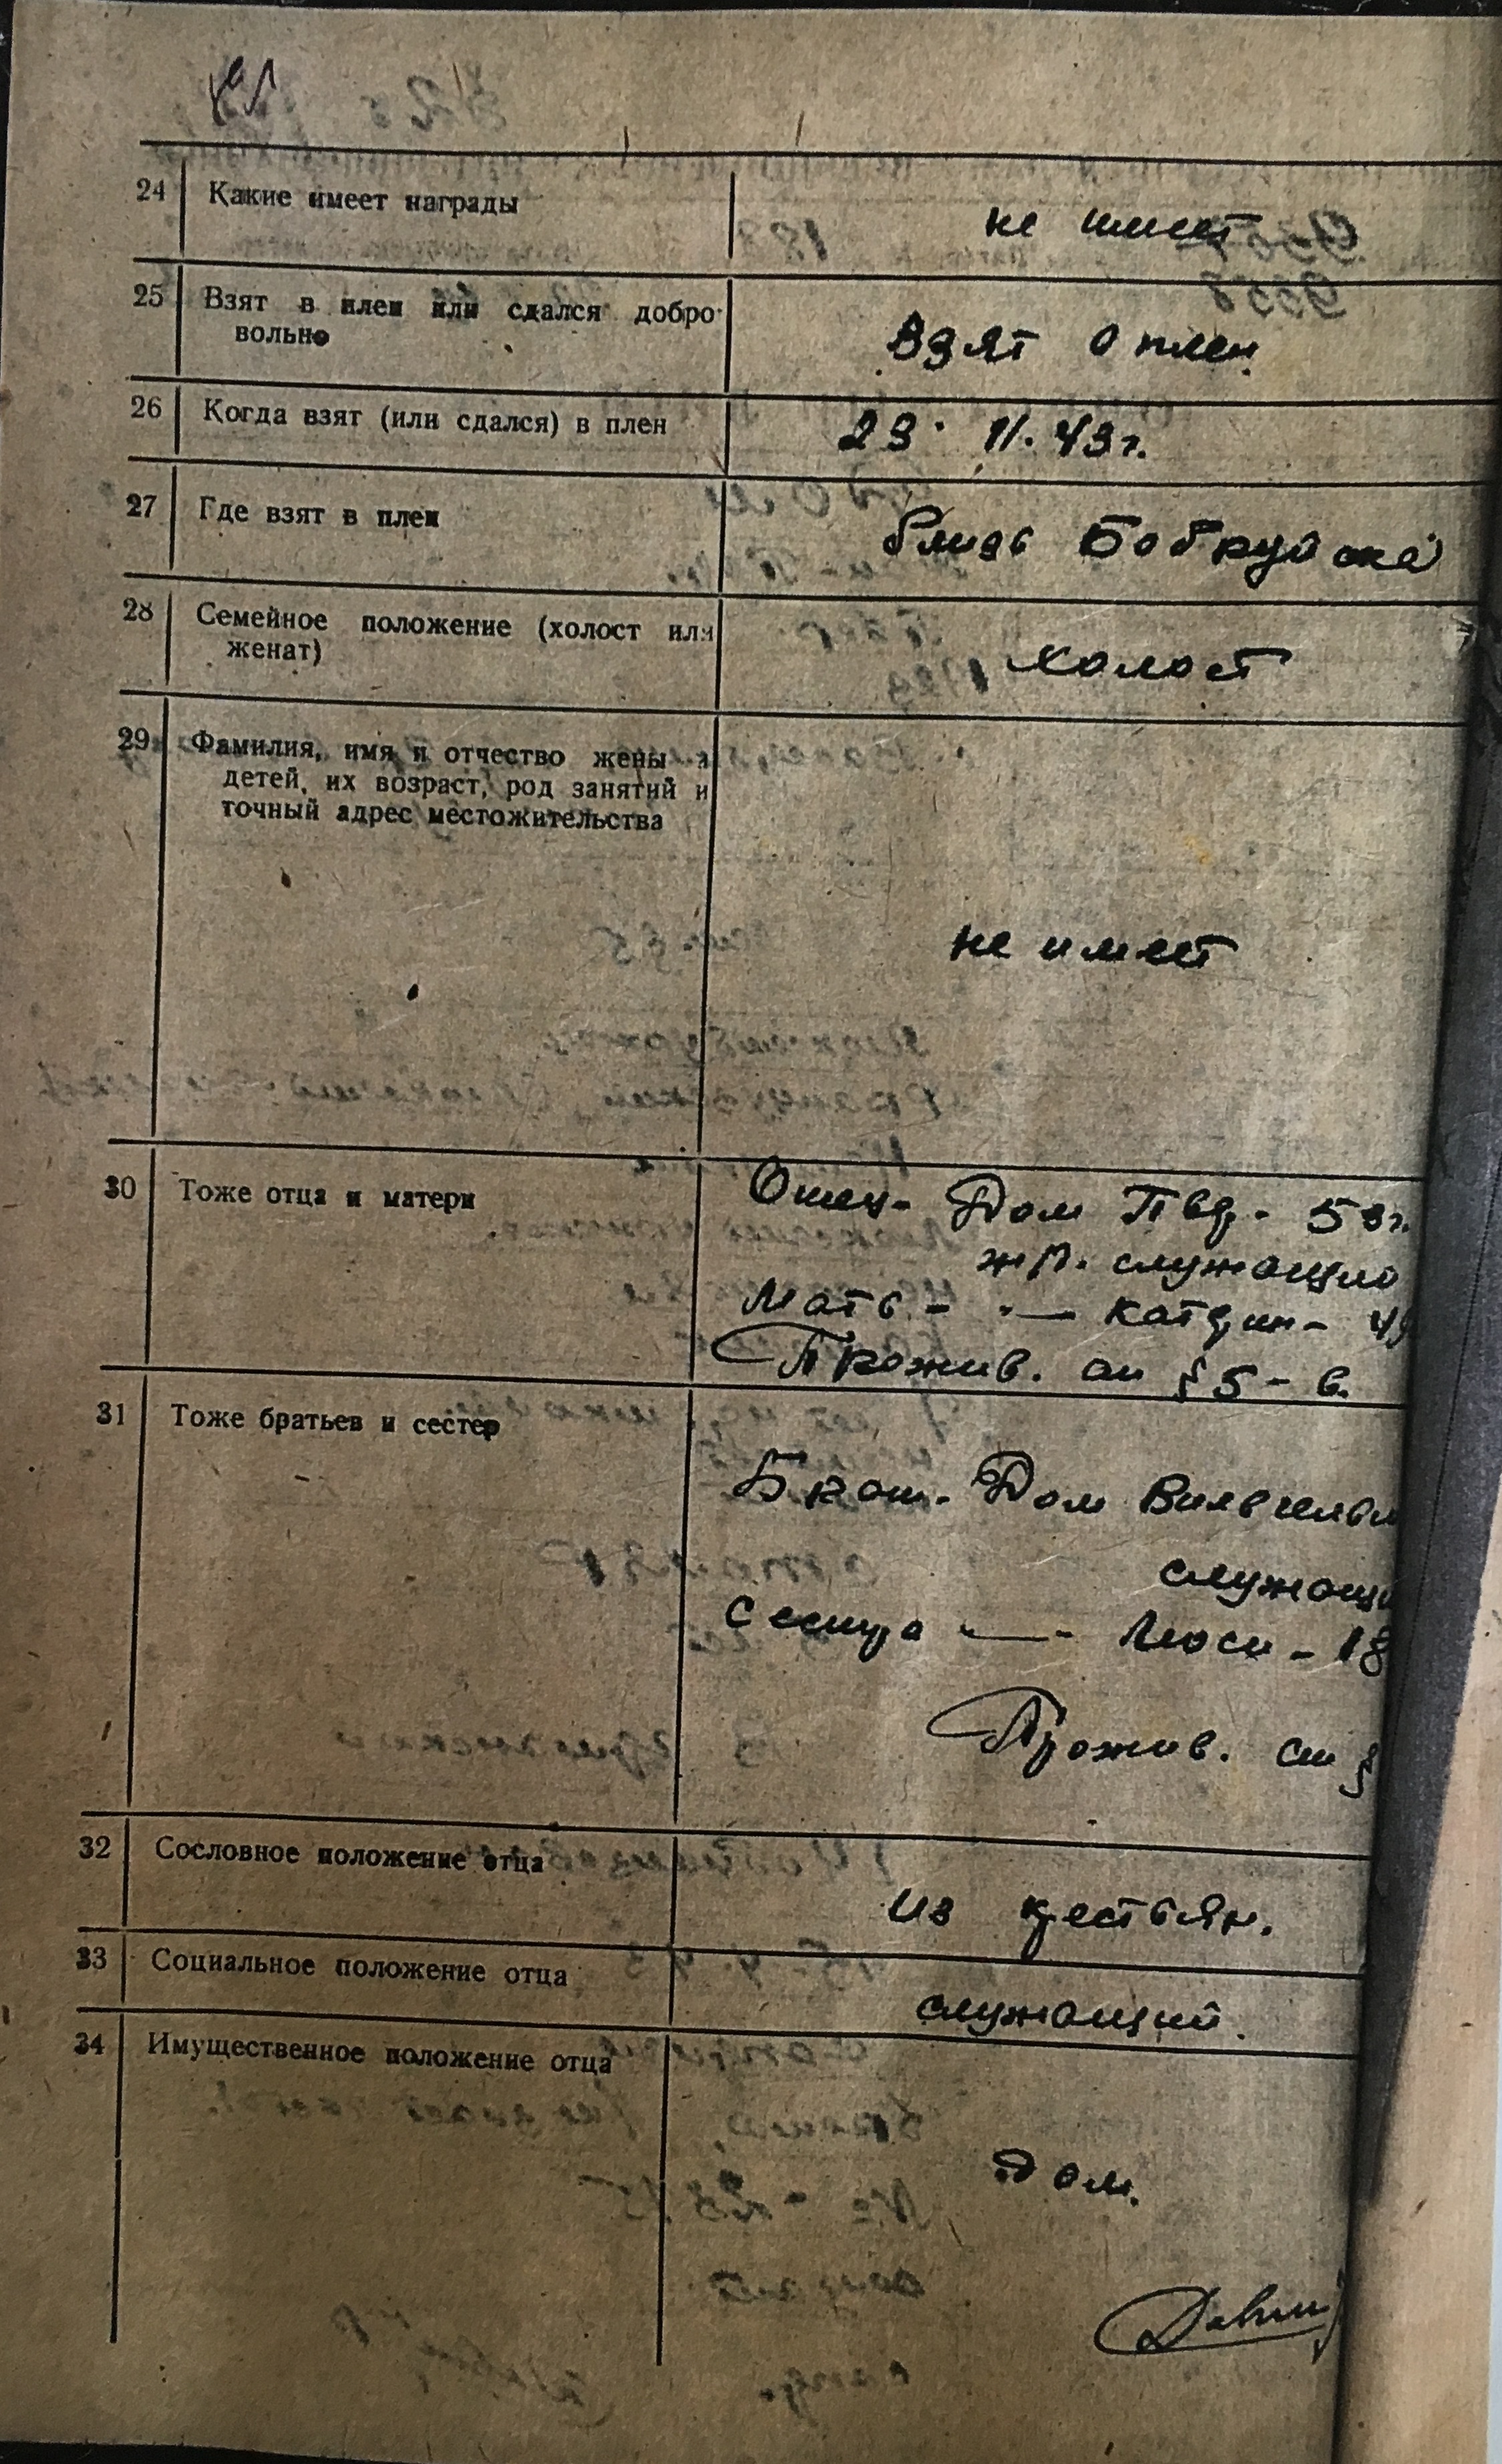 24 Какие имеет награды не имеет
25 Взят в плен или сдался добро-
вольно
взят в плен
26 Когда взят (или сдался) в плен 23. 11. 43 г.
27 Где взят в плен близь Бобруйска
28 Семейное положение (холост или
женат)
холост
29 Фамилия, имя и отчество жены и
детей, их возраст, род занятий и
точный адрес местожительства
не имеет
30 Тоже отца и матери Отец - Дом 53 г.
жд. служащий
Мать - -"-
Прожив. см § 5 - в.
31 Тоже братьев и сестер
Брат - Дом Вильгельм
служащи
Сестра -"- Люси - 18
Прожив. см §
32 Сословное положение отца
из крестьян.
33 Социальное положение отца
служащий.
34 Имущественное положение отца
дом.